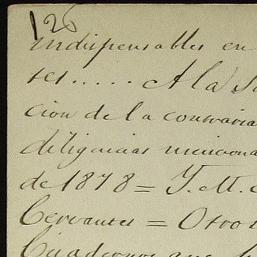 126
indispensables en
ses..... A la S
cion de la contraria
diligencias menciona
de 1878 = T. M. C
Cervantes = Otro
Cuadernos que